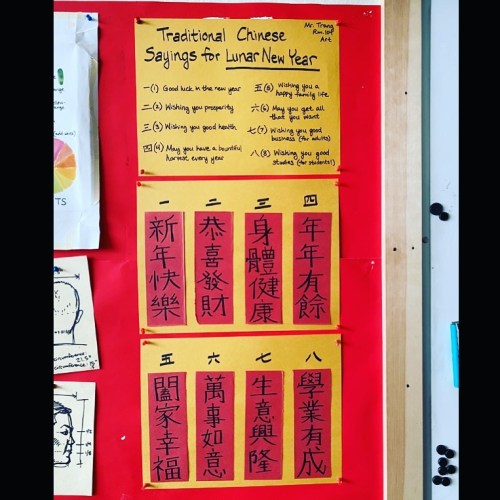 Traditional Chinese
Sayings for Lunar New Year
Mr. Trang
Rm. 101
Art
一 (1) Good luck in the new year
二 (2) Wishing you prosperity
三 (3) Wishing you good health
四 (4) May you have a bountiful
harvest every year
五 (5) Wishing you a
happy family life
六 (6) May you get all
that you want
七 (7) Wishing you good
business (for adults)
八 (8) Wishing you good
studies (for students!)
一 二 三 四
新年快樂
恭喜發財
身體健康
年年有餘
五 六 七 八
闔家幸福
萬事如意
生意興隆
學業有成